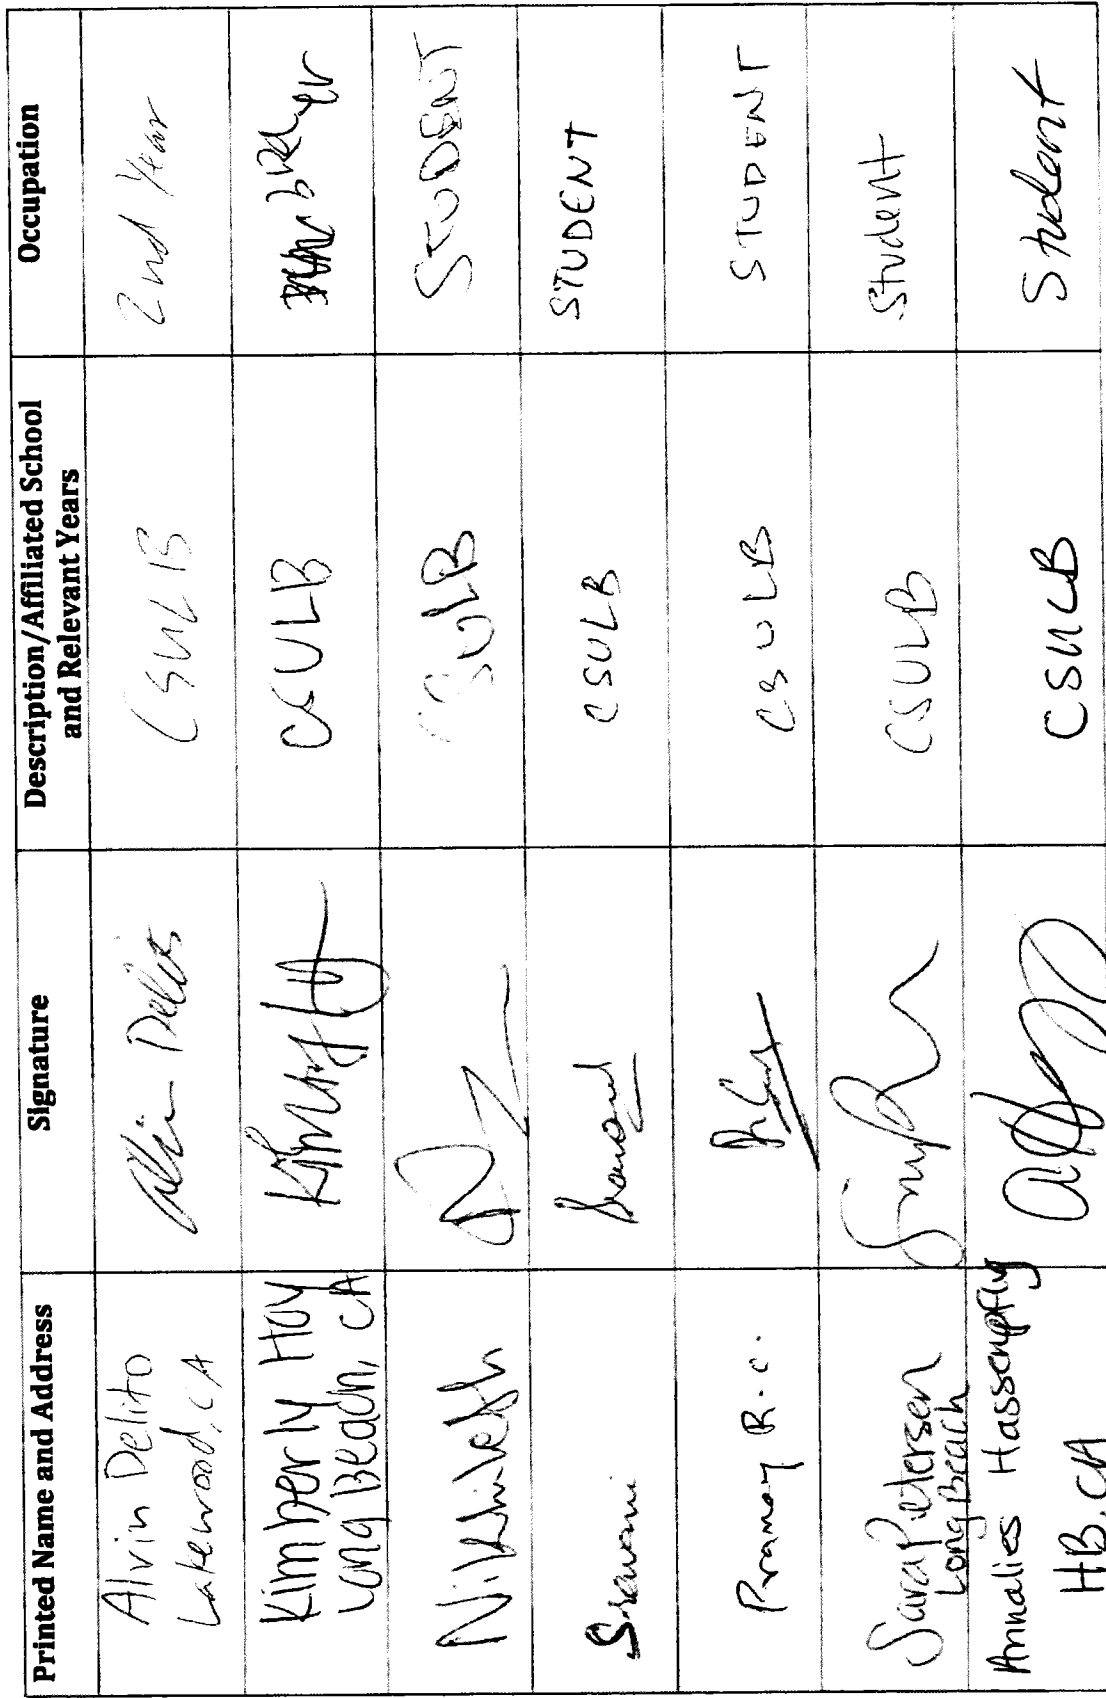 Printed Name and Address
Signature
Description/Affiliated School
and Relevant Years
Occupation
Alvin Delito
Lakewood, CA
CSULB
2nd Year
Kimberly Hoy
Long Beach, CA
CSULB
Nikhilesh
CSULB
STUDENT
Sravani
CSULB
STUDENT
Pranay R.C.
CSULB
STUDENT
Sara Petersen
Long Beach
CSULB
Student
Annalies Hassenpflug
HB, CA
CSULB
Student